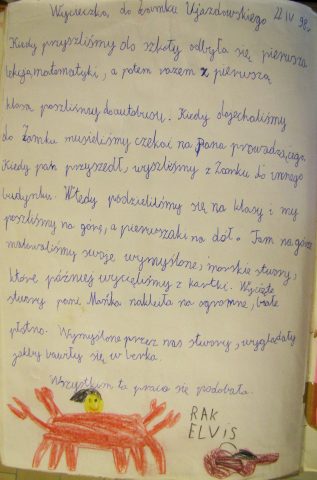 Wycieczka do Zamku Ujazdowskiego 22 IV 98r.
Kiedy przyszliśmy do szkoły odbyła się pierwsza
lekcja matematyki, a potem razem z pierwszą
klasą poszliśmy do autobusu. Kiedy dojechaliśmy
do Zamku musieliśmy czekać na Pana prowadzącego.
Kiedy pan przyszedł, wyszliśmy z Zamku do innego
budynku. Wtedy podzieliliśmy się na klasy i my
poszliśmy na górę, a pierwszaki na dół. Tam na górze
malowaliśmy swoje wymyślone, morskie stwory,
które później wycięliśmy z kartki. Wycięte
stwory pani Majka nakleiła na ogromne, białe
płótno. Wymyślone przez nas stwory, wyglądały
jakby bawiły się w berka.
Wszystkim ta praca się podobała.
RAK
ELVIS